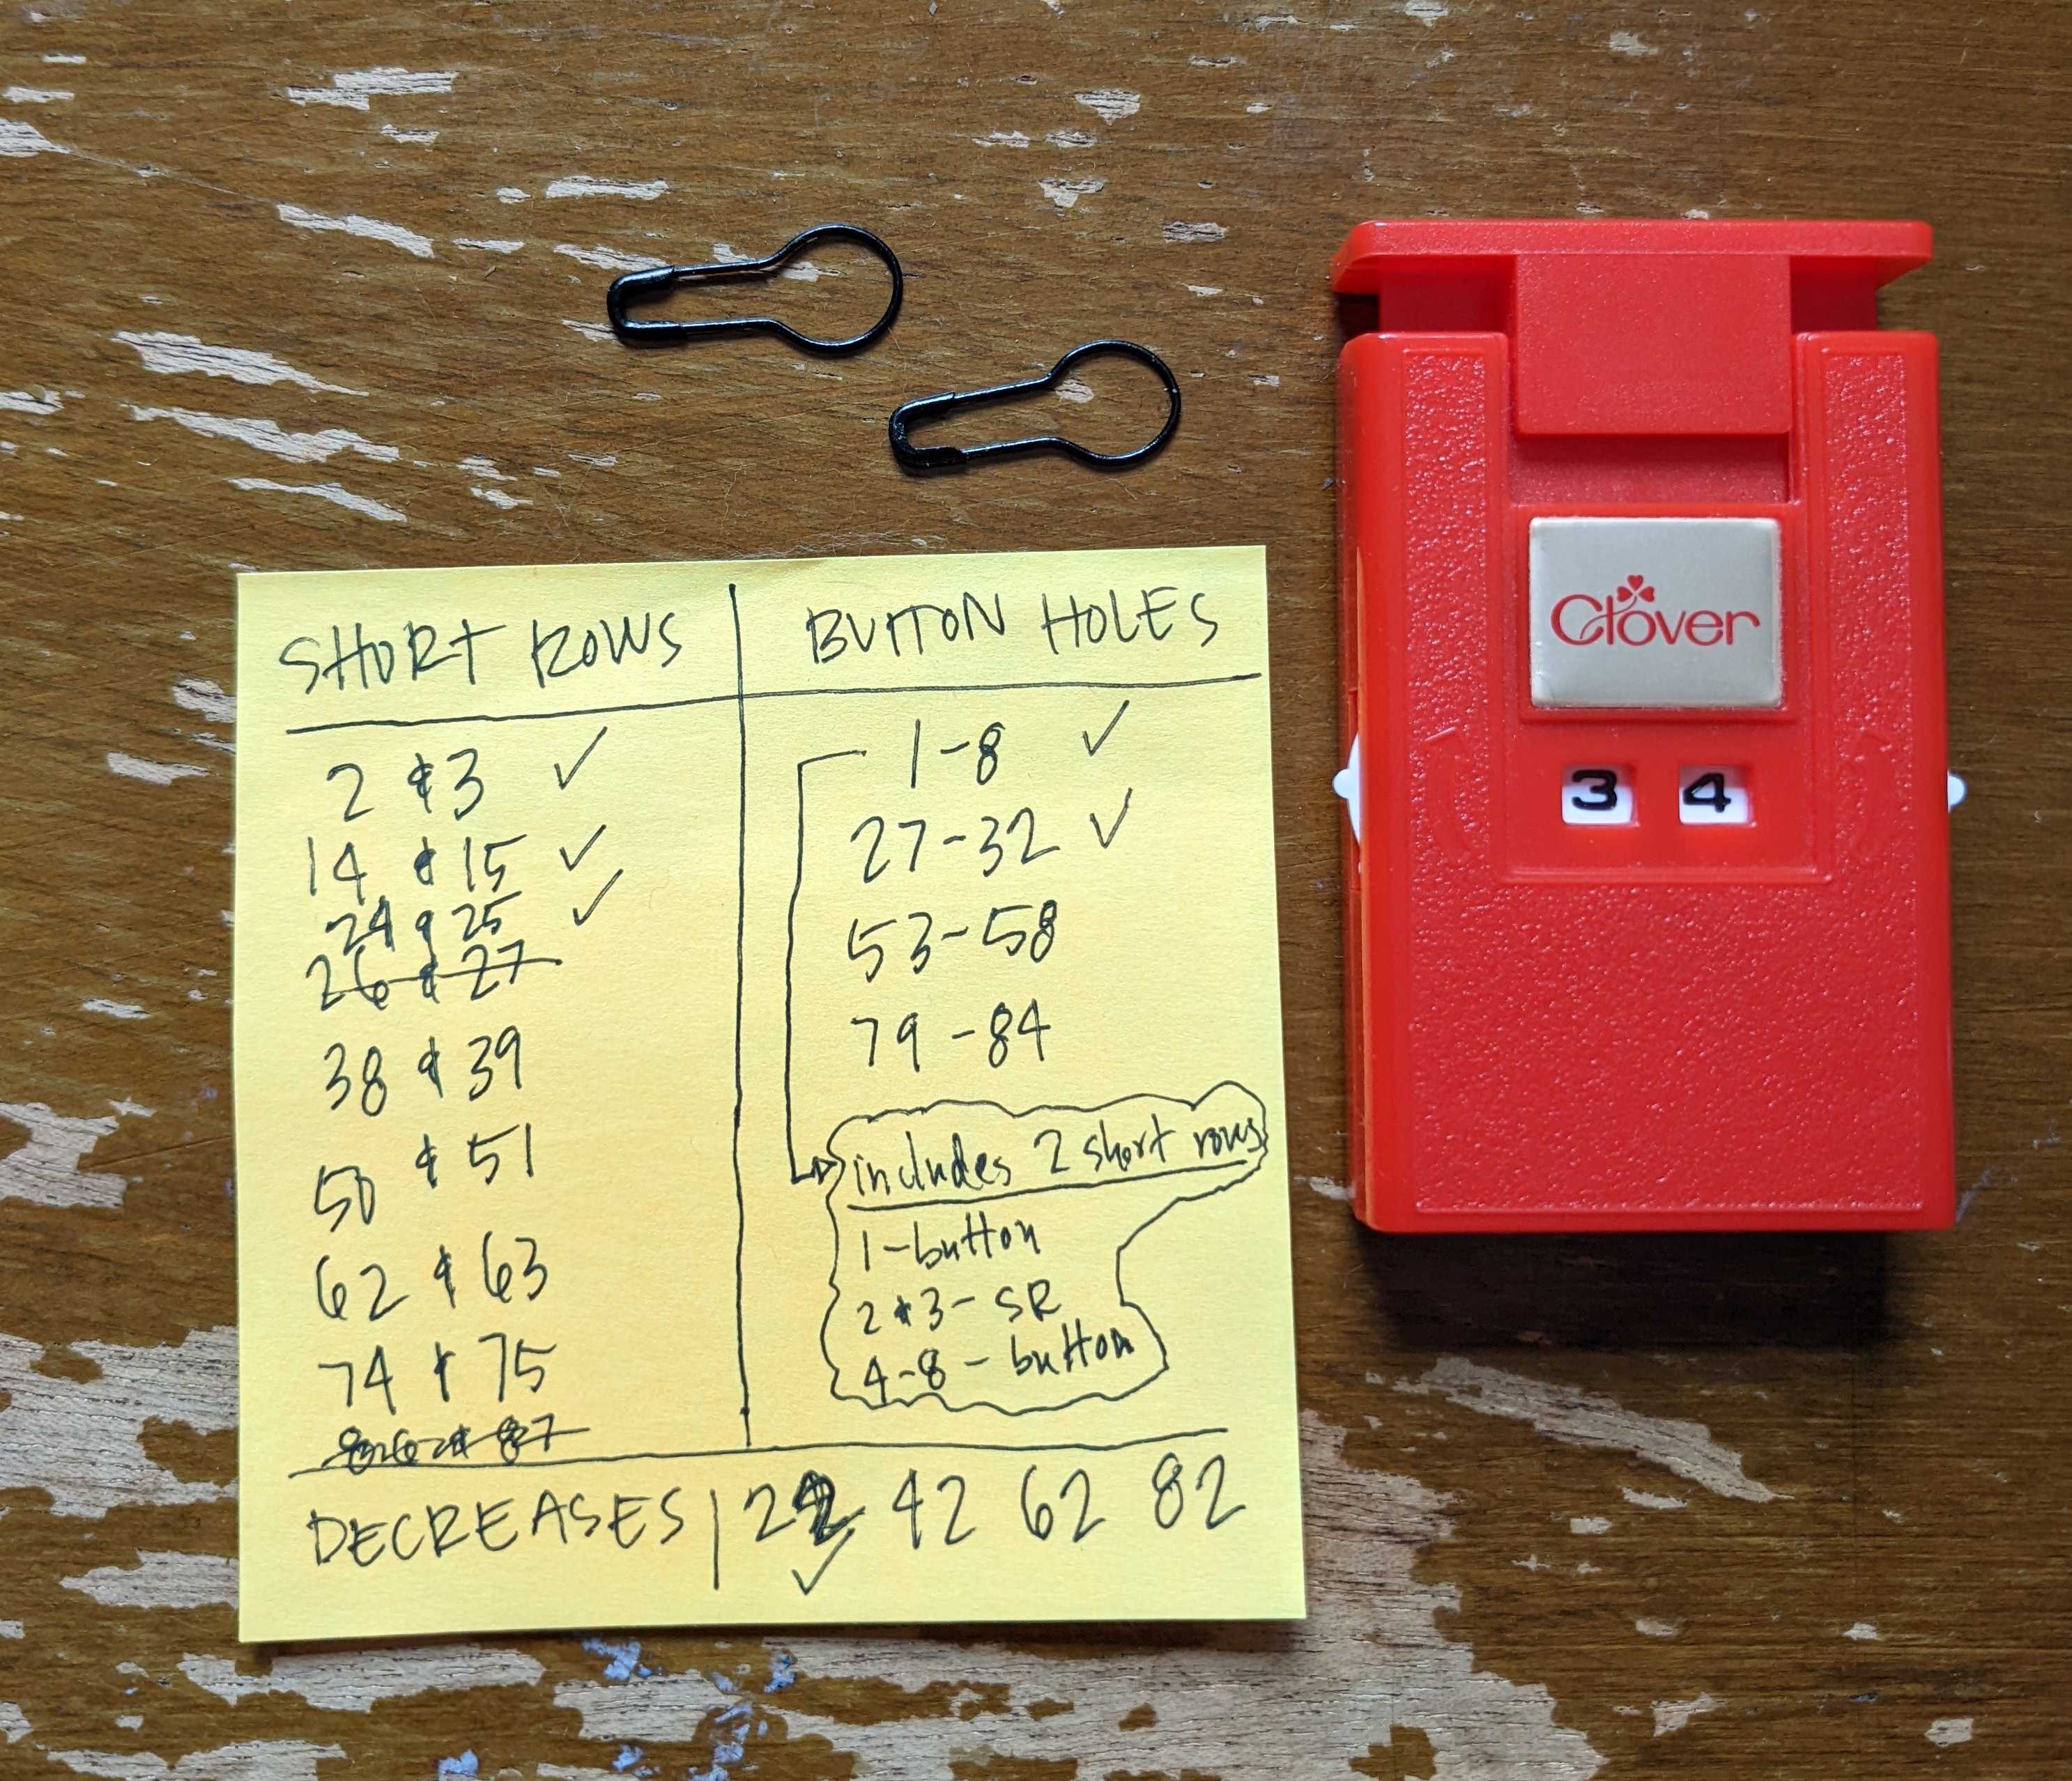 SHORT ROWS
2 & 3 ✓
14 & 15 ✓
24 & 25 ✓
26 & 27
38 & 39
50 & 51
62 & 63
74 & 75
86 & 87
BUTTON HOLES
1-8 ✓
27-32 ✓
53-58
79-84
includes 2 short rows
1-button
2 & 3 - SR
4-8 - button
DECREASES | 22 42 62 82
✓
Clover
3 4